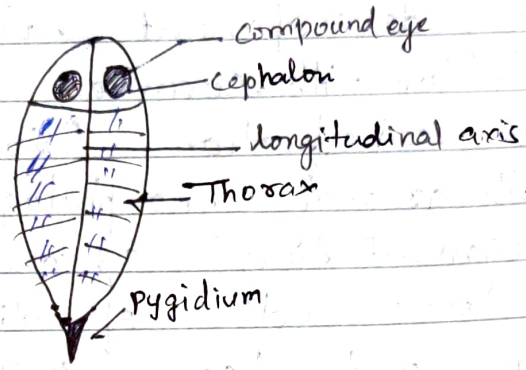 Compound eye
cephalon
longitudinal axis
Thorax
pygidium